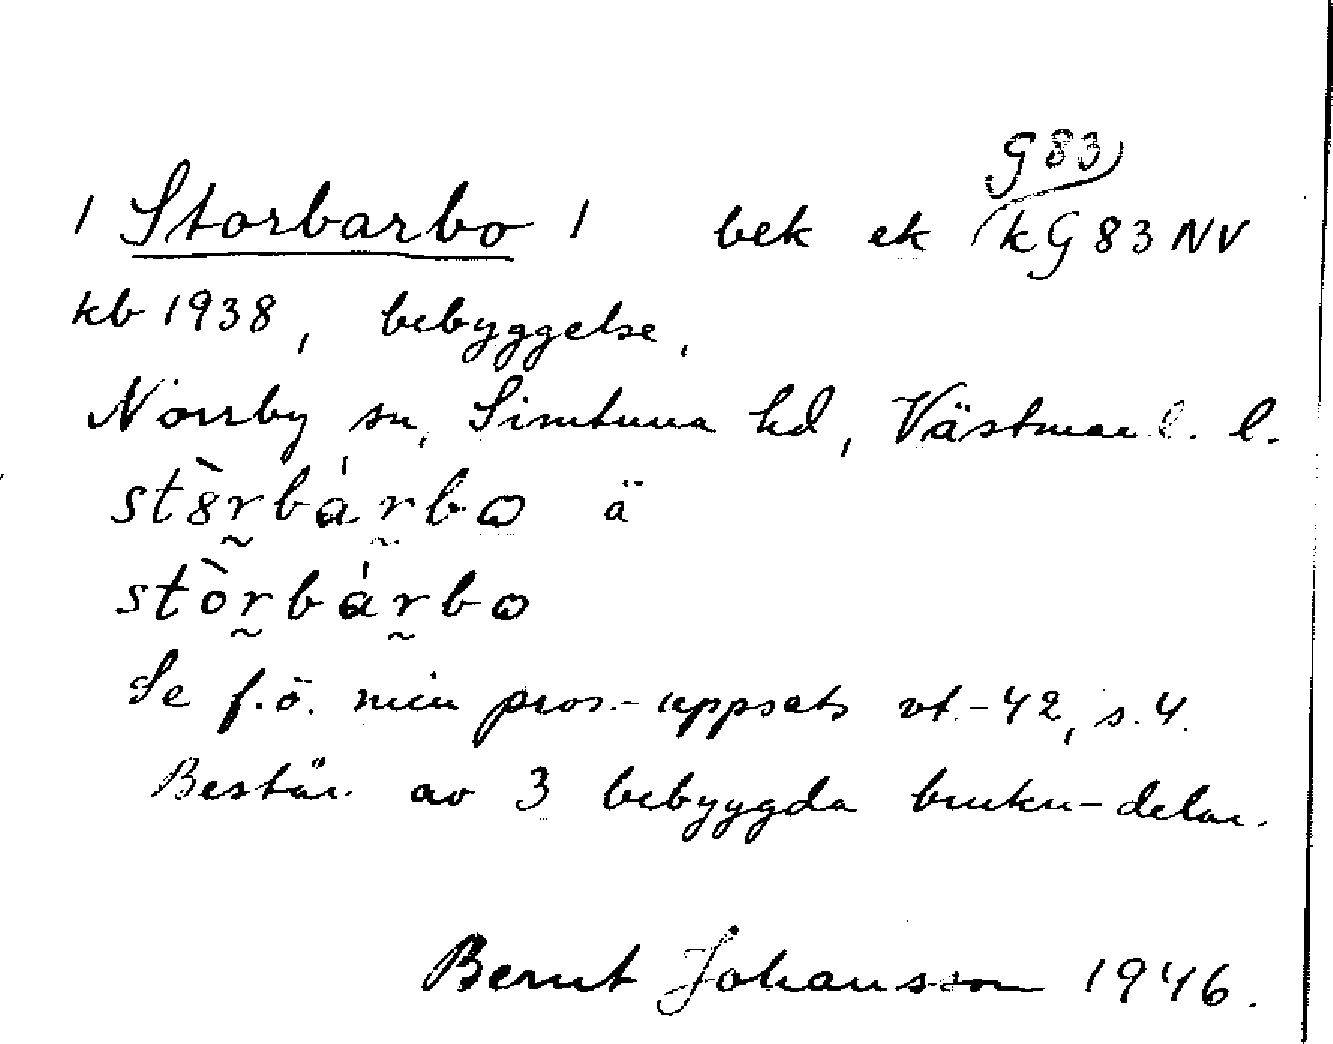 G 83
/ Storbarbo / bek ek kG 83 NV
kb 1938, bebyggelse.
Norrby sn, Simtuna hd, Västmanl. l.
stòrbárbω ä
stòrbárbω
Se f.ö. min pros.-uppsats vt.-42, s. 4.
Består av 3 bebyggda bruks-delar.
Bernt Johansson 1946.